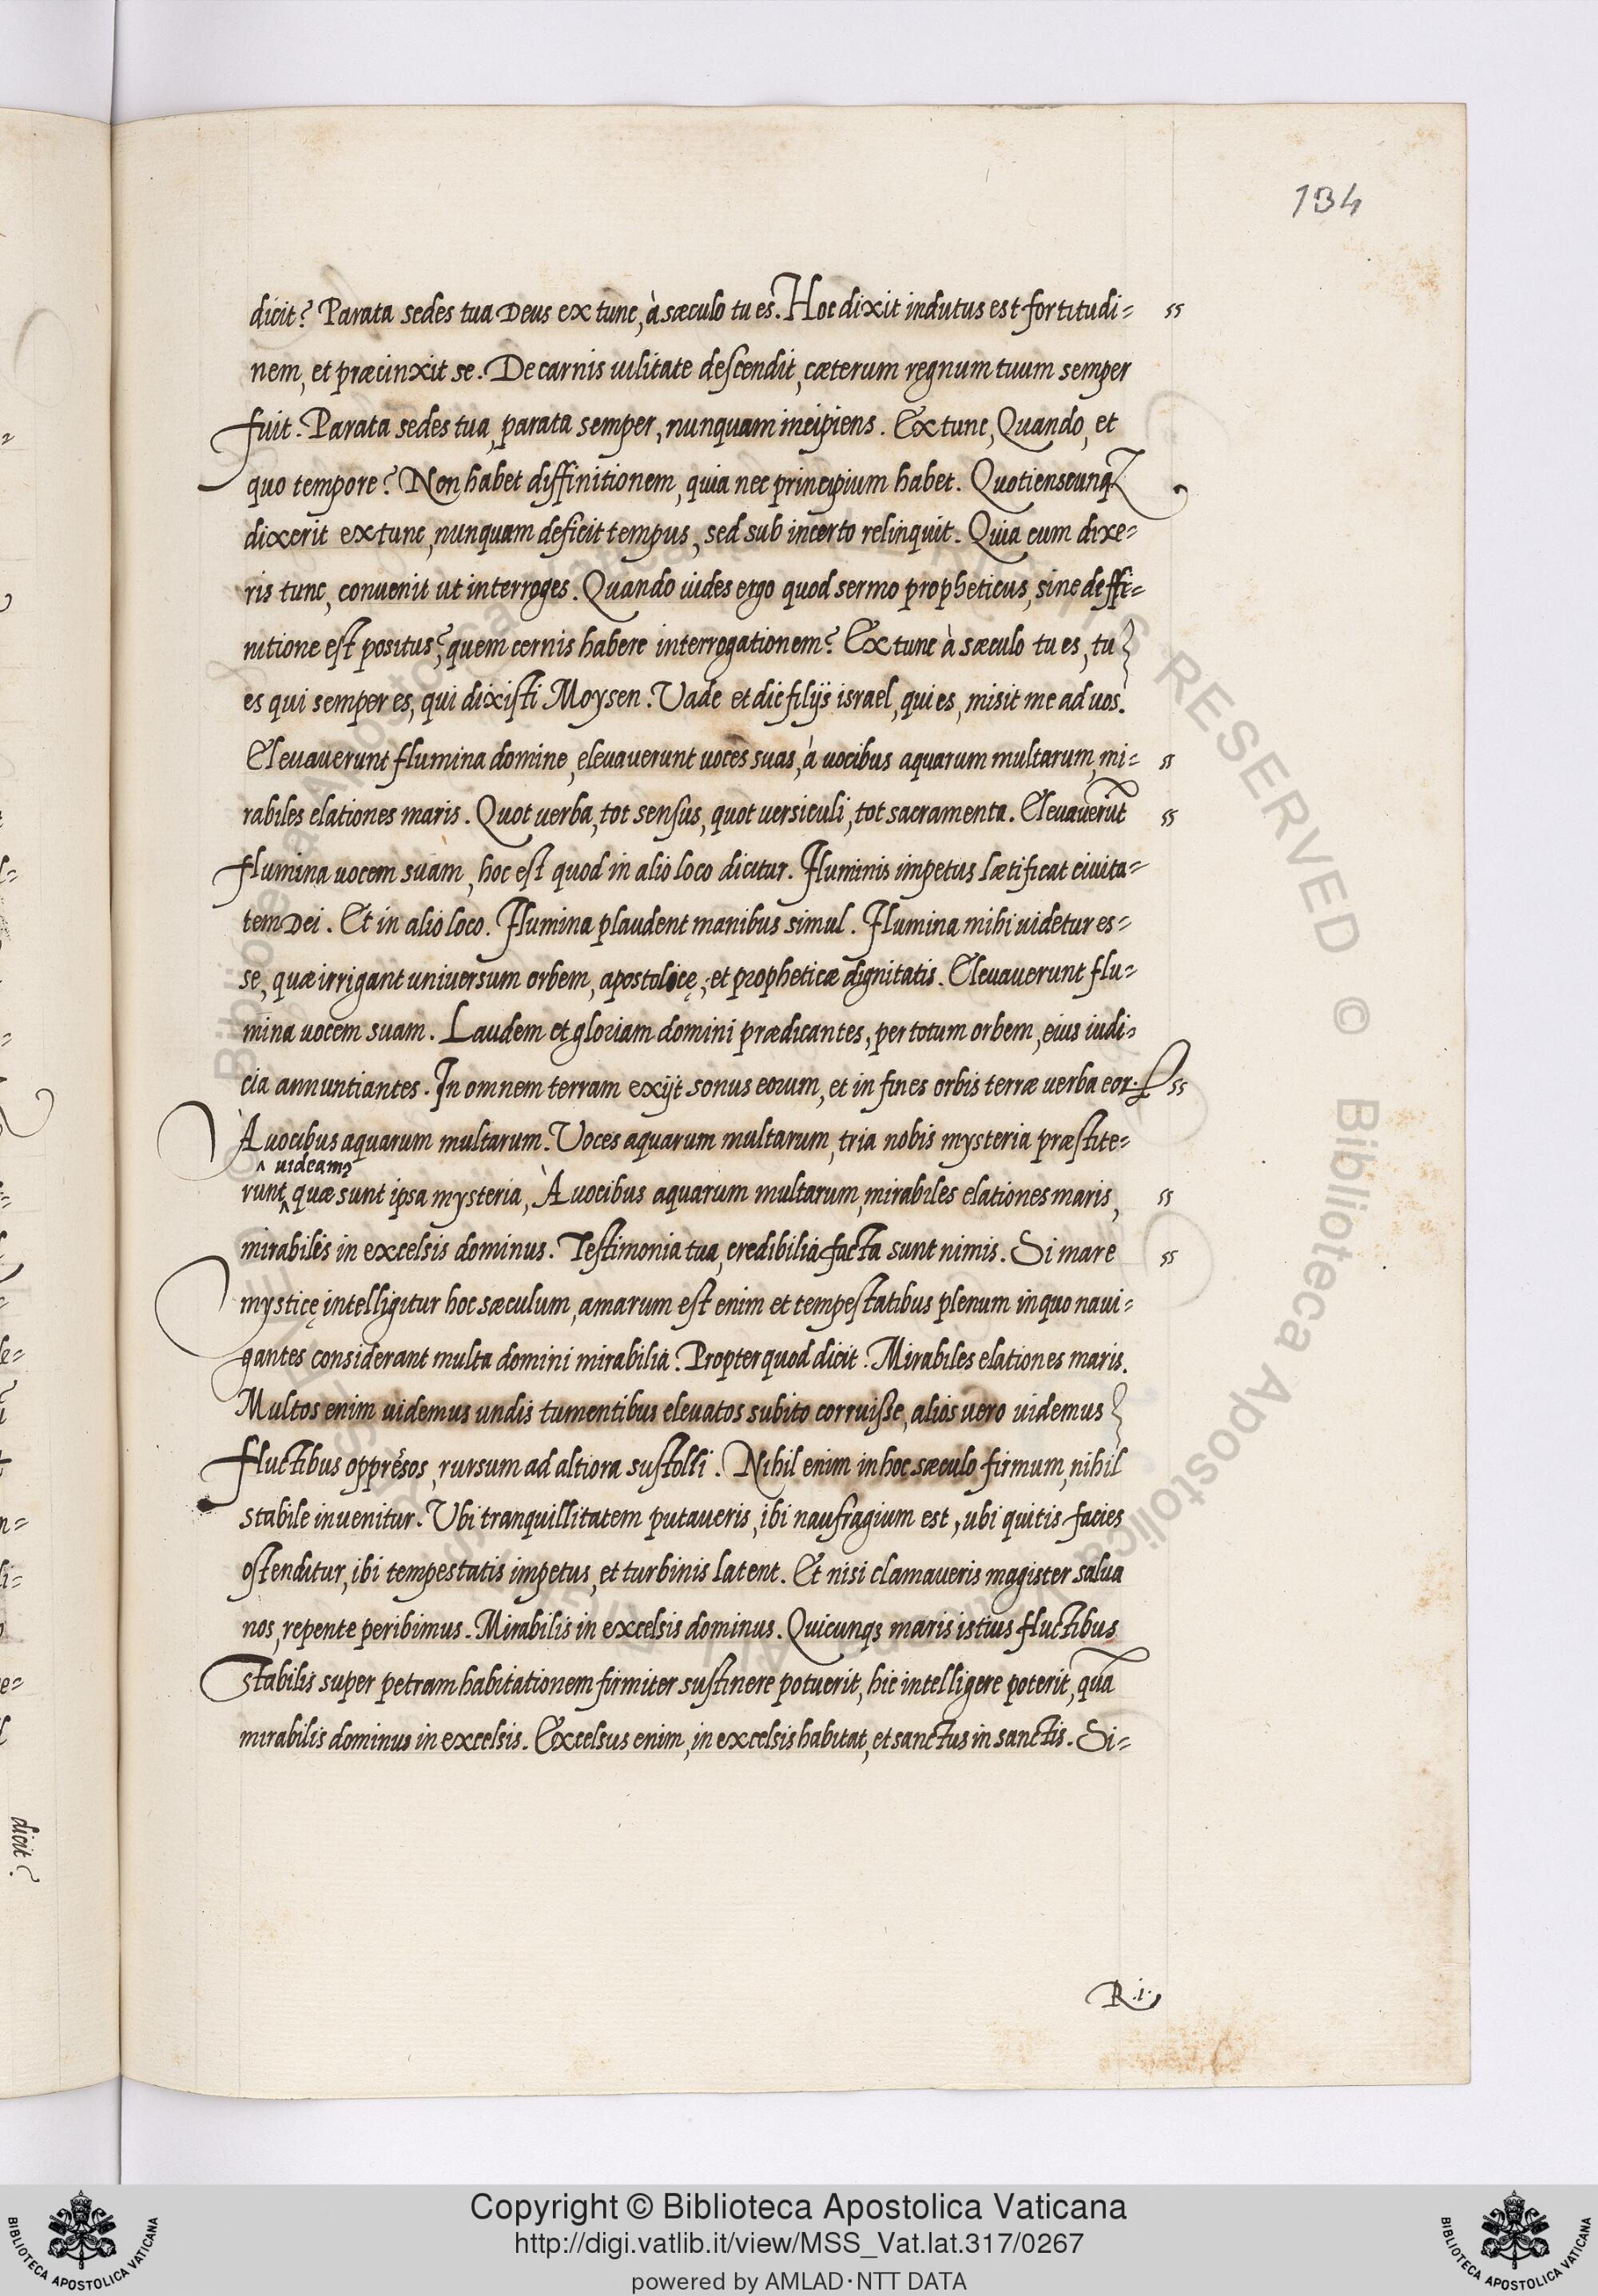 134
dicit? Parata sedes tua Deus ex tunc, à sæculo tu es. Hoc dixit indutus est fortitudi=
nem, et præcinxit se. De carnis uilitate descendit, cæterum regnum tuum semper
fuit. Parata sedes tua, parata semper, nunquam incipiens. Ex tunc, Quando, et
quo tempore? Non habet diffinitionem, quia nec principium habet. Quotienscunqꝫ
dixerit ex tunc, nunquam deficit tempus, sed sub incerto relinquit. Quia cum dixe=
ris tunc, conuenit ut interroges. Quando uides ergo quod sermo propheticus, sine deffi=
nitione est positus, quem cernis habere interrogationem? Ex tunc à sæculo tu es, tu
es qui semper es, qui dixisti Moysen. Vade et dic filijs israel, qui es, misit me ad uos.
Eleuauerunt flumina domine, eleuauerunt uoces suas, à uocibus aquarum multarum, mi=
rabiles elationes maris. Quot uerba, tot sensus, quot uersiculi, tot sacramenta. Eleuauerũt
flumina uocem suam, hoc est quod in alio loco dicitur. Fluminis impetus lætificat ciuita=
tem Dei. Et in alio loco. Flumina plaudent manibus simul. Flumina mihi uidetur es=
se, quæ irrigant uniuersum orbem, apostolicę, et propheticæ dignitatis. Eleuauerunt flu=
mina uocem suam. Laudem et gloriam domini prædicantes, per totum orbem, eius iudi=
cia annuntiantes. In omnem terram exijt sonus eorum, et in fines orbis terræ uerba eorꝝ
À uocibus aquarum multarum. Voces aquarum multarum, tria nobis mysteria præstite=
uideamꝰ
runt, quæ sunt ipsa mysteria, À uocibus aquarum multarum, mirabiles elationes maris,
mirabilis in excelsis dominus. Testimonia tua, credibilia facta sunt nimis. Si mare
mysticę intelligitur hoc sæculum, amarum est enim et tempestatibus plenum in quo naui=
gantes considerant multa domini mirabilia. Propter quod dicit. Mirabiles elationes maris.
Multos enim uidemus undis tumentibus eleuatos subito corruiße, alios uero uidemus
fluctibus oppresos, rursum ad altiora sustolli. Nihil enim in hoc sæculo firmum, nihil
stabile inuenitur. Vbi tranquillitatem putaueris, ibi naufragium est, ubi quitis facies
ostenditur, ibi tempestatis impetus, et turbinis latent. Et nisi clamaueris magister salua
nos, repente peribimus. Mirabilis in excelsis dominus. Quicunqꝫ maris istius fluctibus
stabilis super petram habitationem firmiter sustinere potuerit, hic intelligere poterit, quã
mirabilis dominus in excelsis. Excelsus enim, in excelsis habitat, et sanctus in sanctis. Si=
R .i.
dicit?
Copyright © Biblioteca Apostolica Vaticana
http://digi.vatlib.it/view/MSS_Vat.lat.317/0267
powered by AMLAD·NTT DATA
BIBLIOTECA APOSTOLICA VATICANA
BIBLIOTECA APOSTOLICA VATICANA